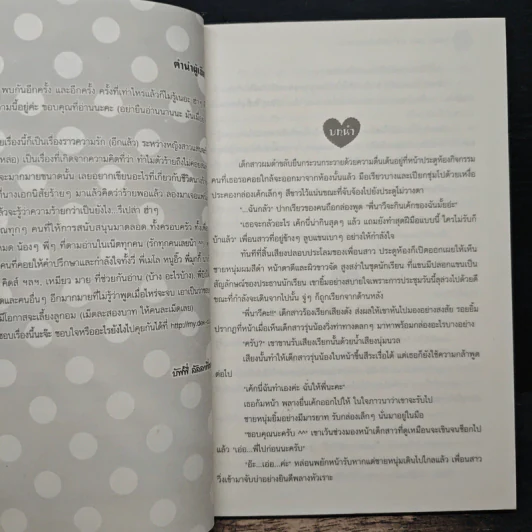 คำนำผู้เขียน
พบกันอีกครั้ง และอีกครั้ง ครั้งที่เท่าไหร่แล้วก็ไม่รู้เนอะ ฮ่า
ขอบคุณที่อ่านนะคะ
เรื่องนี้ก็เป็นเรื่องราวความรัก (อีกแล้ว) ระหว่างหญิงสาว
เป็นเรื่องที่เกิดจากความคิดที่ว่า ทำไมตัวร้ายถึงไม่
มากมายขนาดนั้น เลยอยากเขียนอะไรที่เกี่ยวกับชีวิต
นางเอกนิสัยร้ายๆ มาแล้วคิดว่าร้ายพอแล้ว ลองมาเจอ
จะรู้ว่าความร้ายกว่าเป็นยังไง...รีเปล่า ฮ่าๆ
คนที่ให้การสนับสนุนมาตลอด ทั้งครอบครัว
น้องๆ พี่ๆ ที่ตามอ่านในเด็กทุกคน (รักทุกคนเลยน้า
คนที่คอยให้คำปรึกษาและกำลังใจทั้งวี่ พี่แมม หนูอิ๋ม
คิดส์ ฯลฯ. เหมียว มาย ที่ช่วยกันอ่าน
และคนอื่นๆ อีกมากมายที่ไม่รู้ว่าพูดเมื่อไหร่จะจบ
มีโอกาสจะเลี้ยงลูกอม (เม็ดละสองบาท ให้คนละเม็ดเลย)
ชอบเรื่องนี้นะจ๊ะ ชอบใจหรืออะไรยังไงไปคุยกันได้ที่ http://my.de
บทนำ
เด็กสาวผมดำขลับยืนกระวนกระวายด้วยความตื่นเต้นอยู่ที่หน้าประตูห้องกิจกรรม
คนที่เธอรอคอยใกล้จะออกมาจากห้องนั้นแล้ว มือเรียวบางและเปียกชุ่มไปด้วยเหงื่อ
ประคองกล่องเค้กเล็กๆ สีขาวไว้แน่นขณะที่จับจ้องไปยังประตูไม่วางตา
"...ฉันกลัว" ปากเรียวของคนถือกล่องพูด "พี่นาวีจะกินเค้กของฉันมั้ยอ่ะ"
"เธอจะกลัวอะไร เค้กนี่น่ากินสุดๆ แล้ว แถมยังทำสุดฝีมือแบบนี้ ใครไม่รับก็
บ้าแล้ว" เพื่อนสาวที่อยู่ข้างๆ ลูบแขนเบาๆ อย่างให้กำลังใจ
ทันทีที่สิ้นเสียงปลอบประโลมของเพื่อนสาว ประตูห้องก็เปิดออกเผยให้เห็น
ชายหนุ่มผมสีดำ หน้าตาดีและผิวขาวจัด สูงสง่าในชุดนักเรียน ที่แขนมีปลอกแขนเป็น
สัญลักษณ์ของประธานนักเรียน เขายิ้มอย่างสบายใจเพราะการประชุมวันนี้ลุล่วงไปด้วยดี
ขณะที่กำลังจะเดินจากไปนั้น จู่ๆ ก็ถูกเรียกจากด้านหลัง
"พี่นาวีคะ!!" เด็กสาวร้องเรียกเสียงดัง ส่งผลให้เขาหันไปมองอย่างสงสัย รอยยิ้ม
ปรากฏที่หน้าเมื่อเห็นเด็กสาวรุ่นน้องวิ่งท่าทางตลกๆ มาหาพร้อมกล่องอะไรบางอย่าง
"ครับ?" เขาขานรับเสียงเรียกนั้นด้วยน้ำเสียงนุ่มนวล
เสียงนั้นทำให้เด็กสาวรุ่นน้องใบหน้าขึ้นสีระเรื่อได้ แต่เธอก็ยังใช้ความกล้าพูด
ต่อไป
"เค้กนี่ฉันทำเองค่ะ ฉันให้พี่นะคะ"
เธอก้มหน้า พลางยื่นเค้กออกไปให้ ในใจภาวนาว่าเขาจะรับไป
ชายหนุ่มยิ้มอย่างมีมารยาท รับกล่องเล็กๆ นั้นมาอยู่ในมือ
"ขอบคุณนะครับ ^^" เขาเว้นช่วงมองหน้าเด็กสาวที่ดูเหมือนจะเขินจนช็อกไป
แล้ว "เอ่อ...พี่ไปก่อนนะครับ"
"อ๊ะ...เอ่อ...ค่ะ" หล่อนพยักหน้ารับหากแต่ชายหนุ่มเดินไปไกลแล้ว เพื่อนสาว
วิ่งเข้ามาจับบ่าอย่างยินดีพลางหัวเราะ